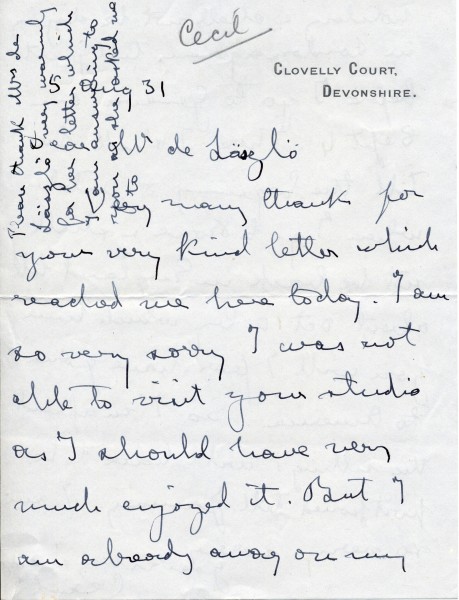 Cecil
CLOVELLY COURT,
DEVONSHIRE.
5 Aug 31
Dear Mr de László
Very many thanks for
your very kind letter which
reached me here today. I am
so very sorry I was not
able to visit your studio
as I should have very
much enjoyed it. But I
am already away on my
Please thank Mrs de
László very warmly
for her letter which
I am answering to
you as she asked me
to